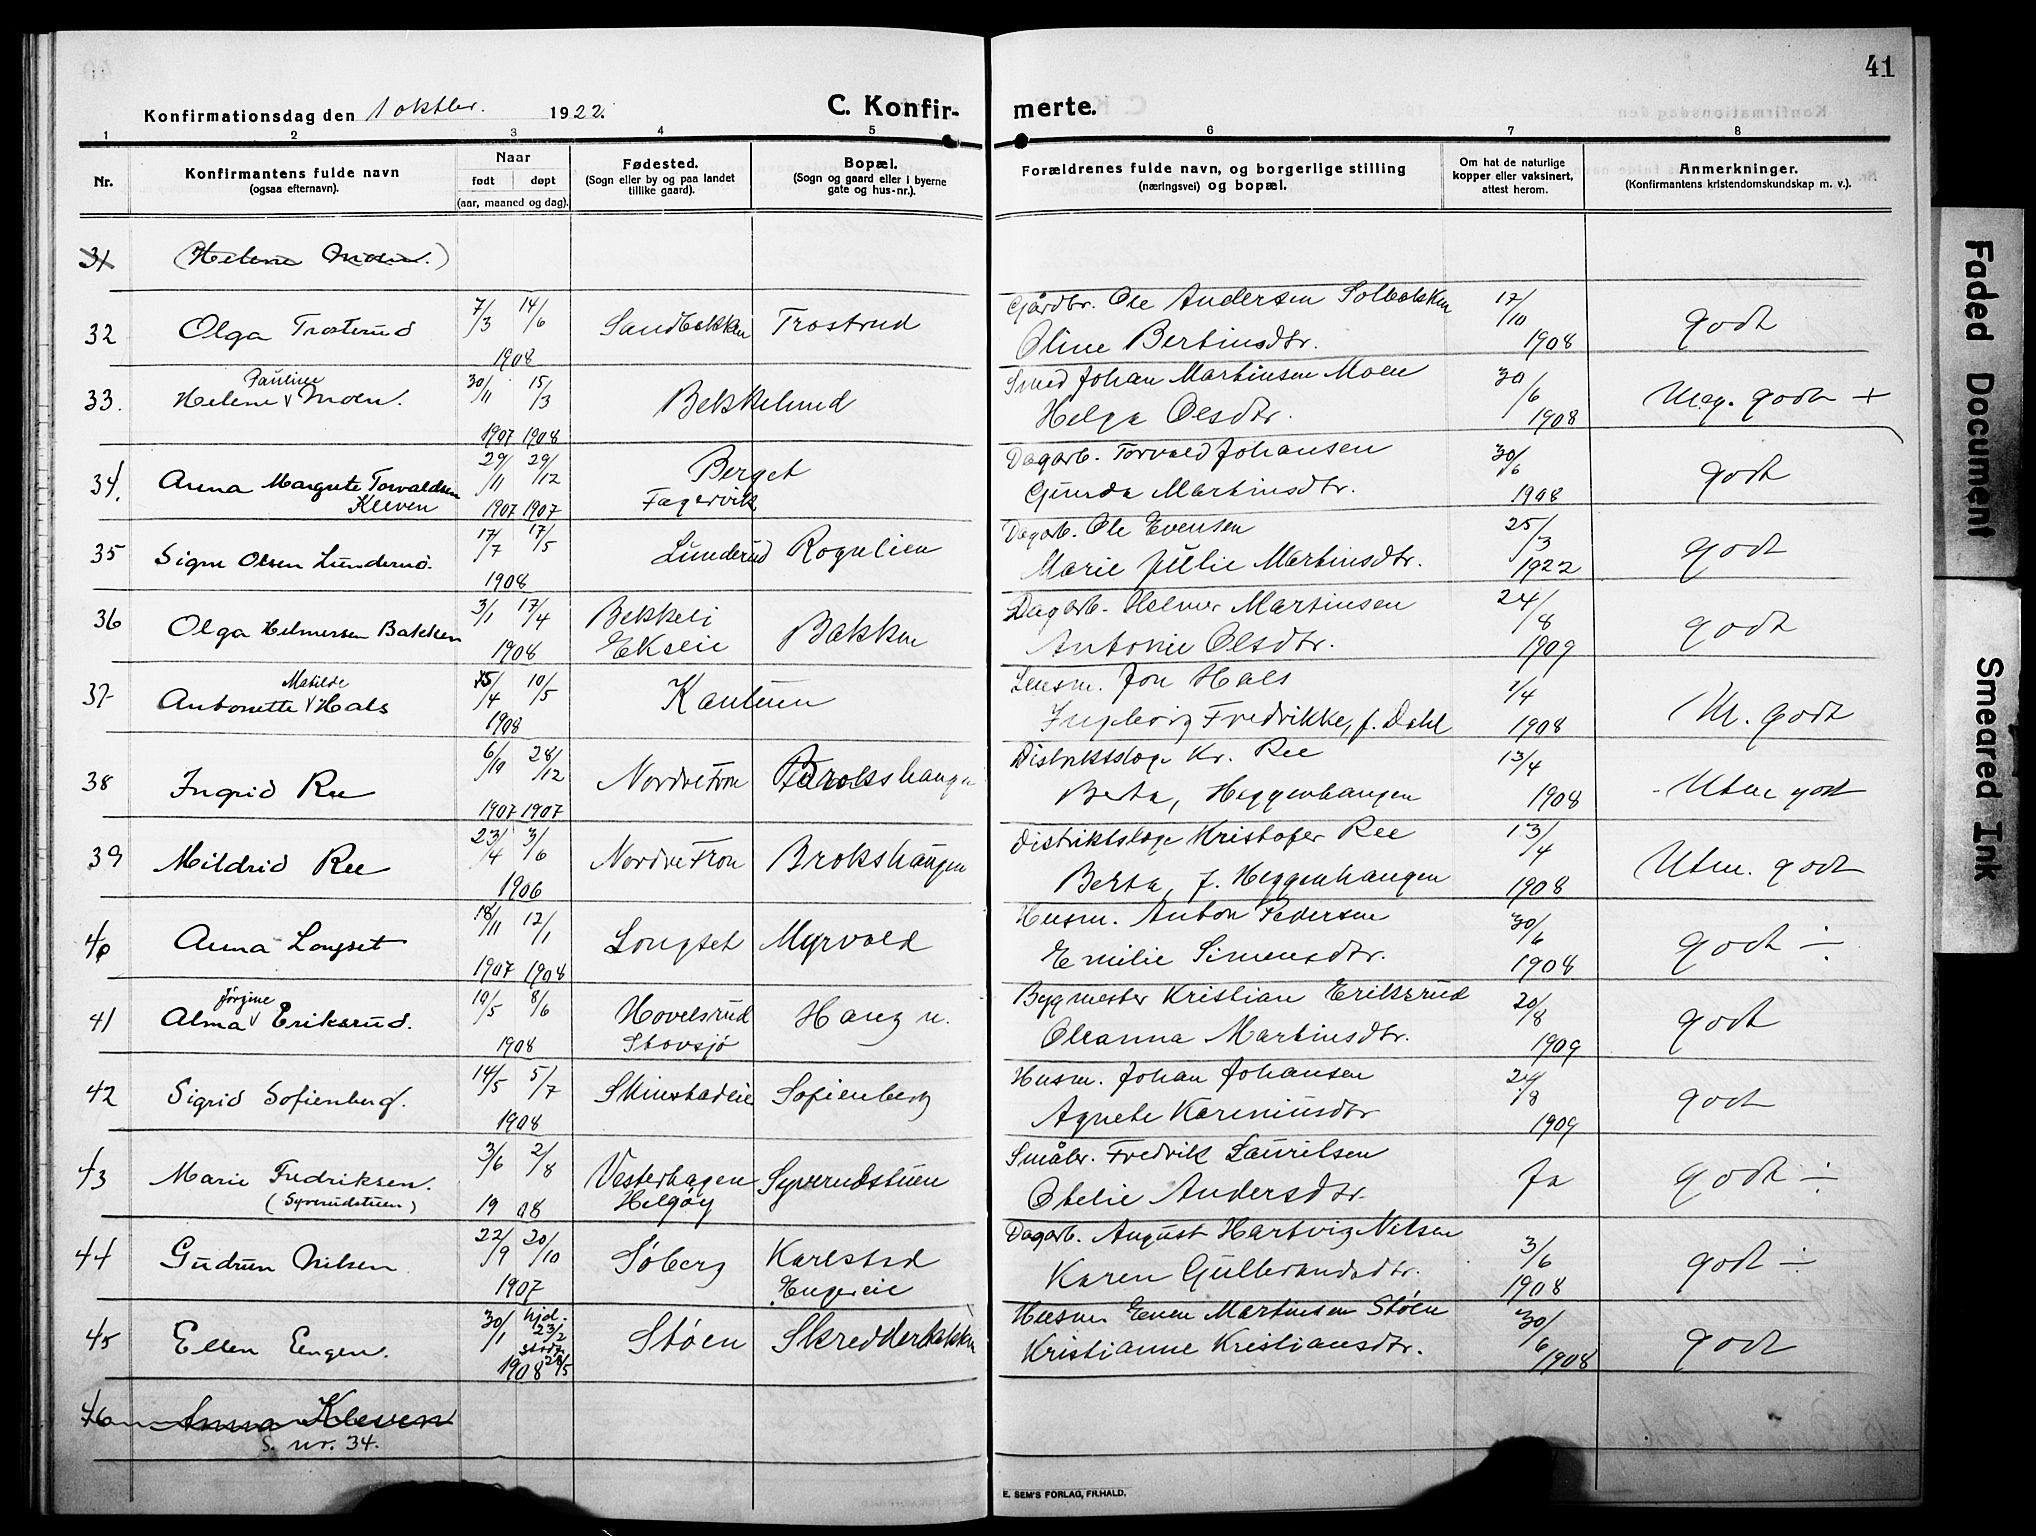 41
Konfirmationsdag den 1 oktbr. 1922. C. Konfirmerte.
1 2 3 4 5 6 7 8
Nr. Konfirmantens fulde navn (ogsaa efternavn). Naar født døpt (aar, maaned og dag). Fødested. (Sogn eller by og paa landet tillike gaard). Bopæl. (Sogn og gaard eller i byerne gate og hus-nr.). Forældrenes fulde navn, og borgerlige stilling (næringsvei) og bopæl. Om hat de naturlige kopper eller vaksinert, attest herom. Anmerkninger. (Konfirmantens kristendomskundskap m. v.).
31 (Helene Moen.)
32 Olga Trostrud 7/3 14/6 1908 Sandbakken Trostrud Gårdbr. Ole Andersen Solbakken Oline Bertinsdtr. 17/10 1908 godt
33. Helene Pauline Moen. 30/11 1907 15/3 1908 Bekkelund Smed Johan Martinsen Moen Helga Olsdtr. 30/6 1908 Meg. godt +
34. Anna Margrete Torvaldsen Kleven 29/11 1907 29/12 1907 Berget Fagervik Dagarb. Torvald Johansen Gunda Martinsdtr. 30/6 1908 godt
35 Signe Olsen Lunderud. 17/7 17/5 1908 Lunderud Rognlien Dagarb. Ole Evensen Marie Julie Martinsdtr. 25/3 1922 godt
36 Olga Helmersen Bakken 3/1 17/4 1908 Bekkeli Ekseie Bakken Dagarb. Helmer Martinsen Antonie Olsdtr. 24/8 1909 godt
37 Antonette Matilde Hals 15/4 10/5 1908 Kanlum Lensm. Jon Hals Ingeborg Fredrikke, f. Dahl 1/4 1908 M. godt
38 Ingrid Ree 6/10 1907 28/12 1907 Nordre Fron Brokshaugen Distriktslæge Kr. Ree Berta, Heggenhaugen 13/4 1908 Utm. godt
39 Mildrid Ree 23/4 3/6 1906 Nordre Fron Brokshaugen Distriktslæge Kristofer Ree Berta, f. Heggenhaugen 13/4 1908 Utm. godt
40 Anna Longset 18/11 1907 12/1 1908 Longset Myrvold Husm. Anton Pedersen Emilie Simensdtr. 30/6 1908 godt ÷
41 Alma Jörgine Eriksrud. 10/5 8/6 1908 Hovelsrud Stavsjö Haug n. Bygmester Kristian Eriksrud Oleanna Martinsdtr. 20/8 1909 godt
42 Sigrid Sofienberg. 14/5 5/7 1908 Skinstadeie Sofienberg Husm. Johan Johansen Agnete Kareniusdtr 24/8 1909 godt
43 Marie Fredriksen. (Syverudstuen) 3/6 2/8 1908 Vesterhagen Helgöy Syverudstuen Småbr. Fredrik Lauritsen Otelie Andersdtr. Ja godt ÷
44 Gudrun Nilsen 22/9 20/10 1907 Söberg Karlstad Engereie Dagarb. August Hartvig Nilsen Karen Gulbrandsdtr. 3/6 1908 godt ÷
45 Ellen Engen. 30/1 hjd. 23/2 stadf. 24/5 1908 Stöen Skredderbakken Husm. Even Martinsen Stöen Kristianne Kristiansdtr. 30/6 1908 godt
46 Anna Kleven
S. nr. 34.
E. SEM'S FORLAG, FR.HALD.
Faded Document
Smeared Ink